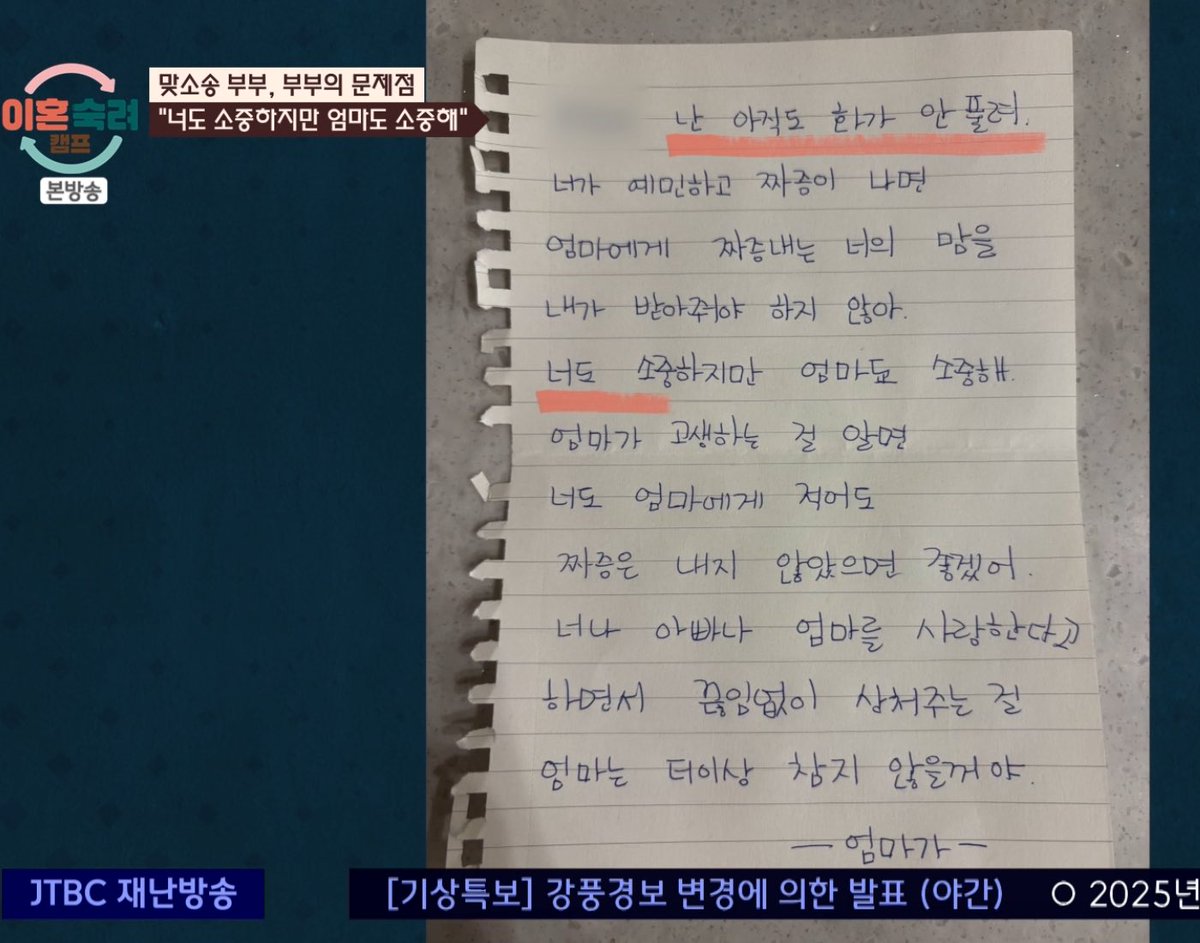 이혼 숙려
캠프
본방송
맞소송 부부, 부부의 문제점
"너도 소중하지만 엄마도 소중해"
난 아직도 화가 안 풀려.
너가 예민하고 짜증이 나면
엄마에게 짜증내는 너의 맘을
내가 받아줘야 하지 않아.
너도 소중하지만 엄마도 소중해.
엄마가 고생하는 걸 알면
너도 엄마에게 적어도
짜증은 내지 않았으면 좋겠어.
너나 아빠나 엄마를 사랑한다고
하면서 끊임없이 상처주는 걸
엄마는 더이상 참지 않을꺼야.
— 엄마가 —
JTBC 재난방송
[기상특보] 강풍경보 변경에 의한 발표 (야간) ○ 2025년